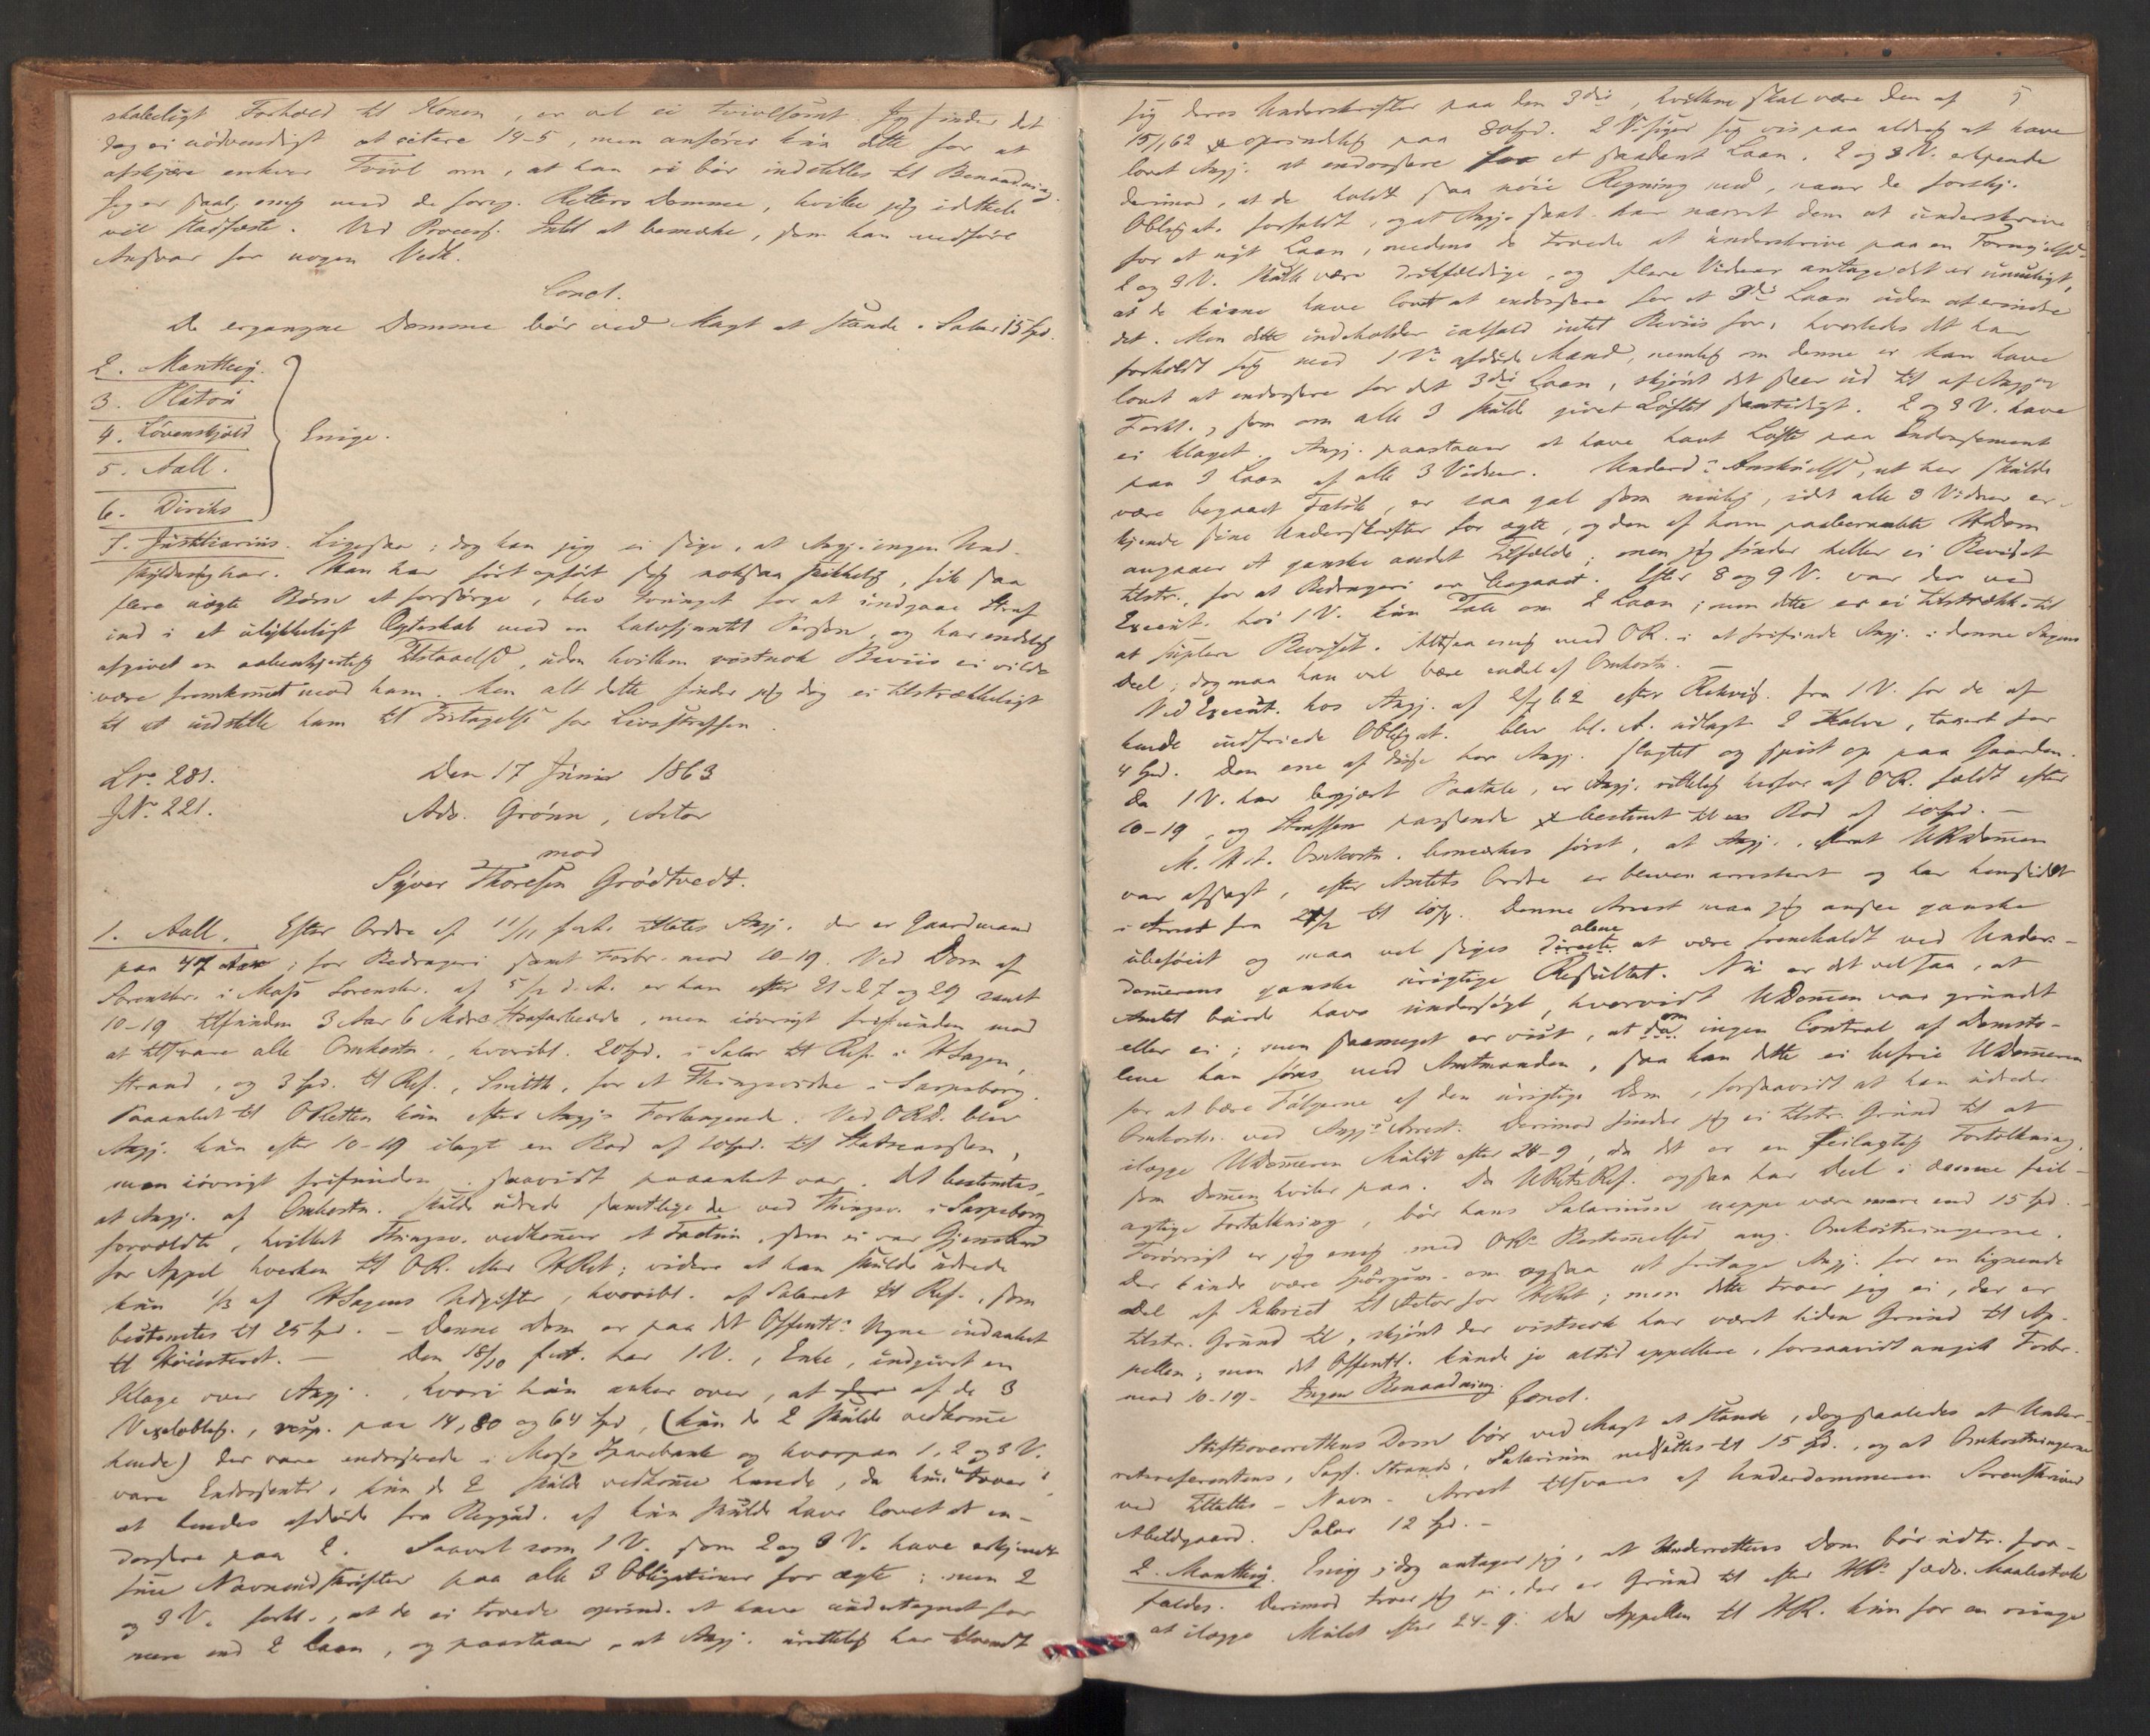 skabeligt Forhold til Konen, er vel ei tvivlsomt. Jeg finder det
dog ei nødvendigt at citere 14-5, men anfører kun dette for at
afskjære enhver Tvivl om, at han ei bør indstilles til Benaadning.
Jeg er saal. enig med de foreg. Retters Domme, hvilke jeg idethele
vil stadfæste. Ved Process. Intet at bemærke, som kan medføre
Ansvar for nogen Vedk.
Concl.
De ergangne Domme bør ved Magt at stande. Salar 15 Spd.
2. Manthey.
3. Platou
4. Løvenskjold
5. Aall.
6. Diriks
Enige.
7. Justitiarius. Ligesaa; dog kan jeg ei sige, at Angj. ingen Und-
skyldning har. Han har ført opført sig noksaa skikkelig, fik saa
flere uægte Børn at forsørge, blev tvunget for at undgaae Straf
ind i et ulykkeligt Ægteskab med en halvfjantet Person, og har endelig
afgivet en aabenhjertig Tilstaaelse, uden hvilken vistnok Beviis ei vilde
være fremkommet mod ham. Men alt dette finder jeg dog ei tilstrækkeligt
til at indstille ham til Fritagelse for Livsstraffen.
L No. 281.
J No. 221.
Den 17 Juni 1863
Adv. Grønn, Actor
mod
Syver Thoresen Grødtvedt.
1. Aall. Efter Ordre af 11/11 f. A. tiltales Angj. der er Gaardmand
paa 47 Aar, for Bedrageri samt Forbr. mod 10-19. Ved Dom af
Sorenskr. i Moss Sorenskr. af 5/2 d. A. er han efter 21-27 og 29 samt
10-19 tilfunden 3 Aar 6 Mdrs Strafarbeide, men iøvrigt frifunden mod
at tilsvare alle Omkostn., hvoribl. 20 Spd. i Salar til Ref. i USagen,
Strand, og 3 Spd. til Ref., Smith, for et Thingsvidne i Sarpsborg.
Paaanket til ORetten kun efter Angj.s Forlangende. Ved ORD. blev
Angj. kun efter 10-19 ilagt en Bod af 10 Spd. til Statscassen,
men iøvrigt frifunden, saavidt paaanket var. Det bestemtes,
at Angj. af Omkostn. skulde udrede samtlige de ved Thingsv. i Sarpsborg
forvoldte, hvilket Thingsv. vedkommer et Factum, som ei var Gjenstand
for Appel hverken til OR. eller HRet; videre at han skulde udrede
kun 1/3 af USagens Udgifter, hvoribl. af Salaret til Ref., som
bestemtes til 25 Spd. – Denne Dom er paa det Offentl.s Vegne indanket
til Høiesteret. – Den 18/10 f. A. har 1 V., Enke, indgivet en
Klage over Angj., hvori hun anker over, at af de 3
Vexeloblig., resp. paa 14, 80 og 64 Spd, (kun de 2 skulde vedkomme
hende) der vare endosserede i Moss Sparebank og hvorpaa 1, 2 og 3 V.
vare Endossenter, kun de 2 skulde vedkomme hende, da hun troer,
at hendes afdøde
dossere paa 2. Saavel som 1 V. som 2 og 3 V. have erkjendt
sine Navneunderskrifter paa alle 3 Obligationer for ægte; men 2
og 3 V. forkl., at de ei troede oprind. at have undertegnet for
mere end 2 Laan, og paastaar, at Angj. urettelig har tilvendt
5
sig deres Underskrifter paa den 3die, hvilken skal være den af
15/1 62 oprindelig paa 80 Spd. 2 V. siger sig vis paa aldrig at have
lovet Angj. at endossere et saadant Laan. 2 og 3 V. erkjende
derimod, at de holdt saa nøie Regning med, naar de forskj.
Obligat. forfaldt, og at Angj. saal. har narret dem at underskrive
for et nyt Laan, medens de troede at underskrive paa en Fornyelse.
2 og 3 V. skulle være drikfældige, og flere Vidner antage det ei umuligt,
at de kunne have lovet at endossere for et 3die Laan uden at erindre
det. Men dette indeholder ialfald intet Beviis for, hvorledes det har
forholdt sig med 1 V.s afdøde Mand, nemlig om denne ei kan have
lovet at endossere for det 3die Laan, skjønt det seer ud til af Angj.s
Forkl., som om alle 3 skulde givet Løftet samtidigt. 2 og 3 V. have
ei klaget. Angj. paastaaer at have havt Løfte paa Endossement
paa 3 Laan af alle 3 Vidner. Underd.s Anskuelse, at her skulde
være begaaet Falsk, er saa gal som mulig, idet alle 3 Vidner er-
kjende sine Underskrifter for ægte, og den af ham paaberaabte HRDom
angaaer et ganske andet Tilfælde; men jeg finder heller ei Beviset
tilstr., for at Bedrageri er begaaet. Efter 8 og 9 V. var der ved
Execut. hos 1 V. kun Tale om 2 Laan; men dette er ei tilstrækk. til
at suplere Beviset. Altsaa enig med OR. i at frifinde Angj. i denne Sagens
Deel; dog maa han vel bære endel af Omkostn. –
Ved Execut. hos Angj. af 2/7 62 efter Rekvis. fra 1 V. for de af
hende indfriede Obligat. blev bl. A. udlagt 2 Kalve, taxeret for
4 Spd. Den ene af disse har Angj. slagtet og spist op paa Gaarden.
Da 1 V. har begjært Paatale, er Angj. rettelig herfor af OR. fældt efter
10-19, og Straffen passende bestemt til en Bod af 10 Spd. –
M. H. t. Omkostn. bemærkes først, at Angj., efterat URsdommen
var afsagt, efter Amtets Ordre er bleven arresteret og har hensiddet
i Arrest fra 21/2 til 10/4. Denne Arrest maa jeg ansee ganske
ubeføiet og maa vel siges directe alene at være fremkaldt ved Under-
dommerens ganske urigtige Resultat. Nu er det vel saa, at
Amtet burde have undersøgt, hvorvidt UDommen var grundet
eller ei; men saameget er vist, at om ingen Control af Domsto-
lene kan føres med Amtmanden, saa kan dette ei befrie UDommeren
for at bære Følgerne af den urigtige Dom, forsaavidt at han udreder
Omkostn. ved Angj.s Arrest. Derimod finder jeg ei tilstr. Grund til at
ilægge UDommeren Mulct efter 24-9, da det er en feilagtig Fortolkning,
som Dommen hviler paa. Da URets Ref. ogsaa har Deel i denne feil-
agtige Fortolkning, bør hans Salarium neppe være mere end 15 Spd. –
Forøvrigt er jeg enig med ORs Bestemmelse ang. Omkostningerne.
Der kunde være Spørgsm. om ogsaa at fritage Angj. for en lignende
Del af Salariet til Actor for HRet; men dette troer jeg ei, der er
tilstr. Grund til, skjønt der vistnok har været liden Grund til Ap-
pellen; men det Offentl. kunde jo altid appellere, forsaavidt angik Forbr.
mod 10-19. Ingen Benaadning. Concl.
Stiftsoverrettens Dom bør ved Magt at stande, dog saaledes at Under-
retsreferentens, Sagf. Strands, Salarium nedsættes til 15 Spd., og at Omkostningerne
ved Tiltaltes – Navn – Arrest tilsvares af Underdommeren Sorenskriver
Abildgaard. Salar 12 Spd. –
2. Manthey. Enig; dog antager jeg, at Underrettens Dom bør udtr. for-
Derimod troer jeg ei, der er Grund til efter HRs sædv. Maalestok
at ilægge Mulct efter 24-9. Da Appellen til HR. kun for en ringe